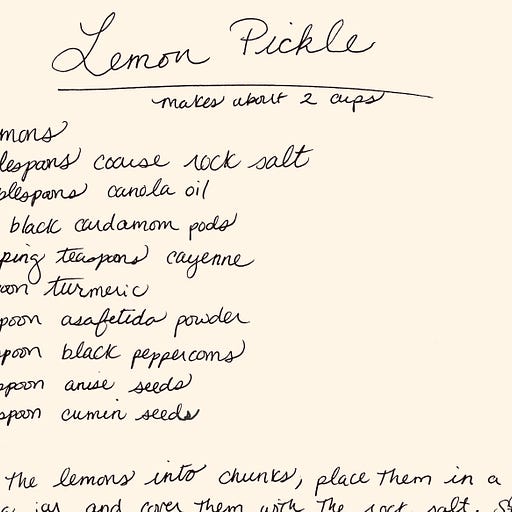 Lemon Pickle
makes about 2 cups
mons
lespoons coarse rock salt
blespoons canola oil
black cardamom pods
ping teaspoons cayenne
oon turmeric
poon asafetida powder
spoon black peppercorns
spoon anise seeds
spoon cumin seeds
the lemons into chunks, place them in a
a jar and cover them with the rock salt. S